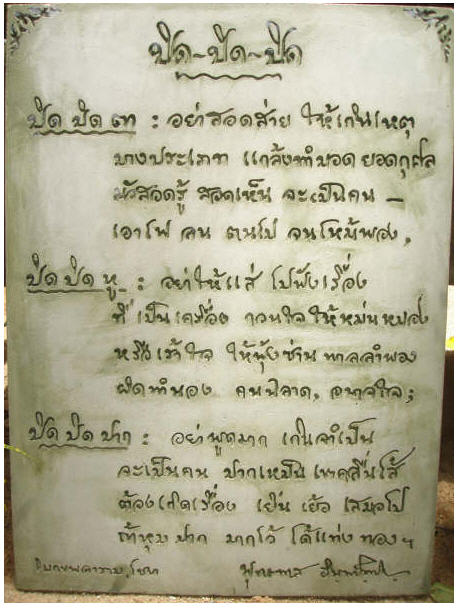 ปิด-ปิด-ปิด
ปิด ปิด ตา : อย่าสอดส่าย ให้เกินเหตุ
บางประเภท แกล้งทำบอด ยอดกุศล
มัวสอดรู้ สอดเห็น จะเป็นคน –
เอาไฟ ลน ตนไป จนไหม้พอง.
ปิด ปิด หู : อย่าให้แส่ ไปฟังเรื่อง
ที่เป็นเครื่อง กวนใจ ให้หม่นหมอง
หรือเร้าใจ ให้ฟุ้งซ่าน พาลลำพอง
ผิดทำนอง คนฉลาด, อนาถใจ;
ปิด ปิด ปาก : อย่าพูดมาก เกินจำเป็น
จะเป็นคน ปากเหม็น เขาคลื่นไส้
ต้องเกิดเรื่อง เยิ่น เย้อ เสมอไป
ถ้าหุบ ปาก มากไว้ ได้แท่ง ทองฯ
พุทธทาส อินทปัญโญ